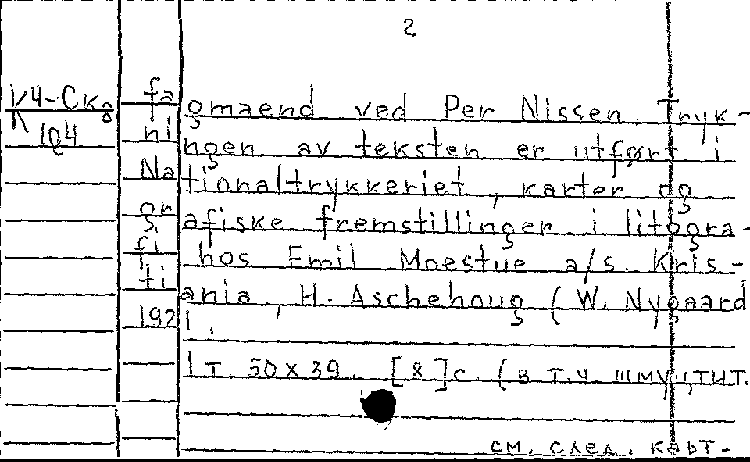 2
К4-Скд fagmaend ved Per Nissen. Tryk-
194 ningen av teksten er utført i
Nationaltrykkeriet, karter og
grafiske fremstillinger i litogra-
fi hos Emil Moestue a/s. Kris-
tiania, H. Aschehoug (W. Nygaard
1921.
1 т. 50x39. [8] с. (в т.ч. шмуцтит.
см. след. карт-